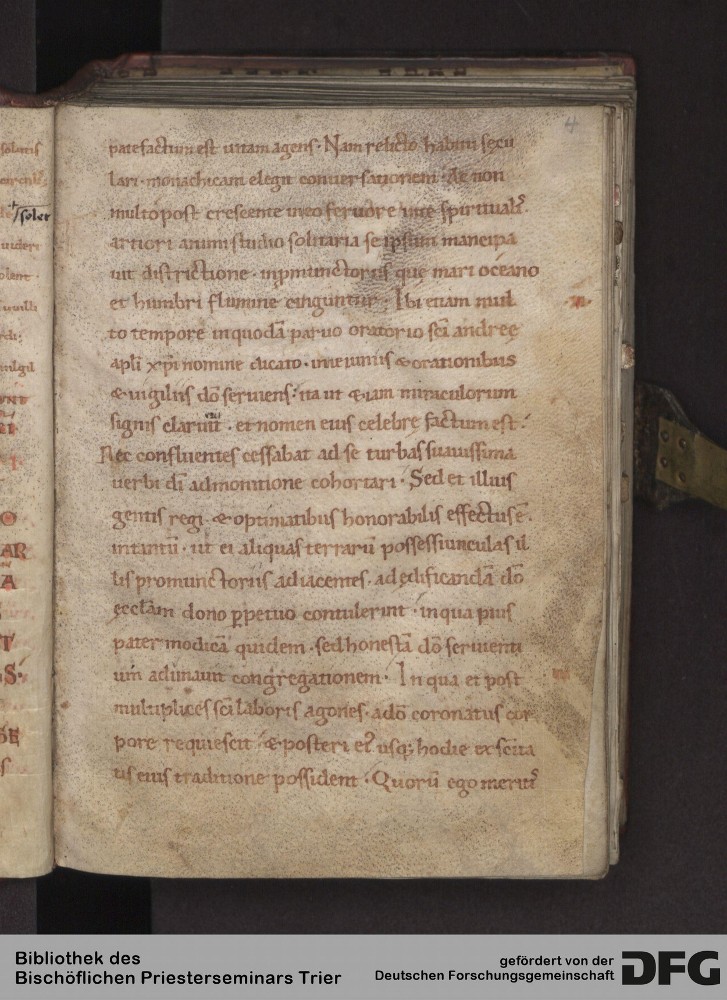 4
patefactum est uitam agens. Nam relicto habitu secu
lari. monachicam elegit conuersationem. At non
multo post crescente uero feruore uite spiritualis.
artiori animi studio solitaria se ipsum mancipa
uit districtione. in promunctoriis que mari oceano
et humbri flumine cinguntur. Ibi etiam mul
to tempore in quodā paruo oratorio sc̄i andreę
apl̄i xp̄i nomine dicato. in ieiuniis & orationibus
& uigiliis dō seruiens: ita ut & iam miraculorum
signis claruit. et nomen eius celebre factum est.
Nec confluentes cessabat ad se turbas suauissima
uerbi dī admonitione cohortari. Sed et illius
gentis regi. & optimatibus honorabilis effectus ē.
in tantū. ut ei aliquas terrarū possessiunculas il
lis promunctoriis adiacentes. ad ędificandā dō
ęcclā̄m dono ꝑpetuo contulerint. in qua pius
pater modicā quidem. sed honestā dō seruienti
um adunauit congregationem. In qua et post
multiplices sc̄i laboris agones. a dō coronatus cor
pore requiescit. & posteri eꝰ usqꝫ hodie ex sc̄ita
tis eius traditione possident. Quorū ego meritꝭ
Bibliothek des
Bischöflichen Priesterseminars Trier
gefördert von der
Deutschen Forschungsgemeinschaft
DFG